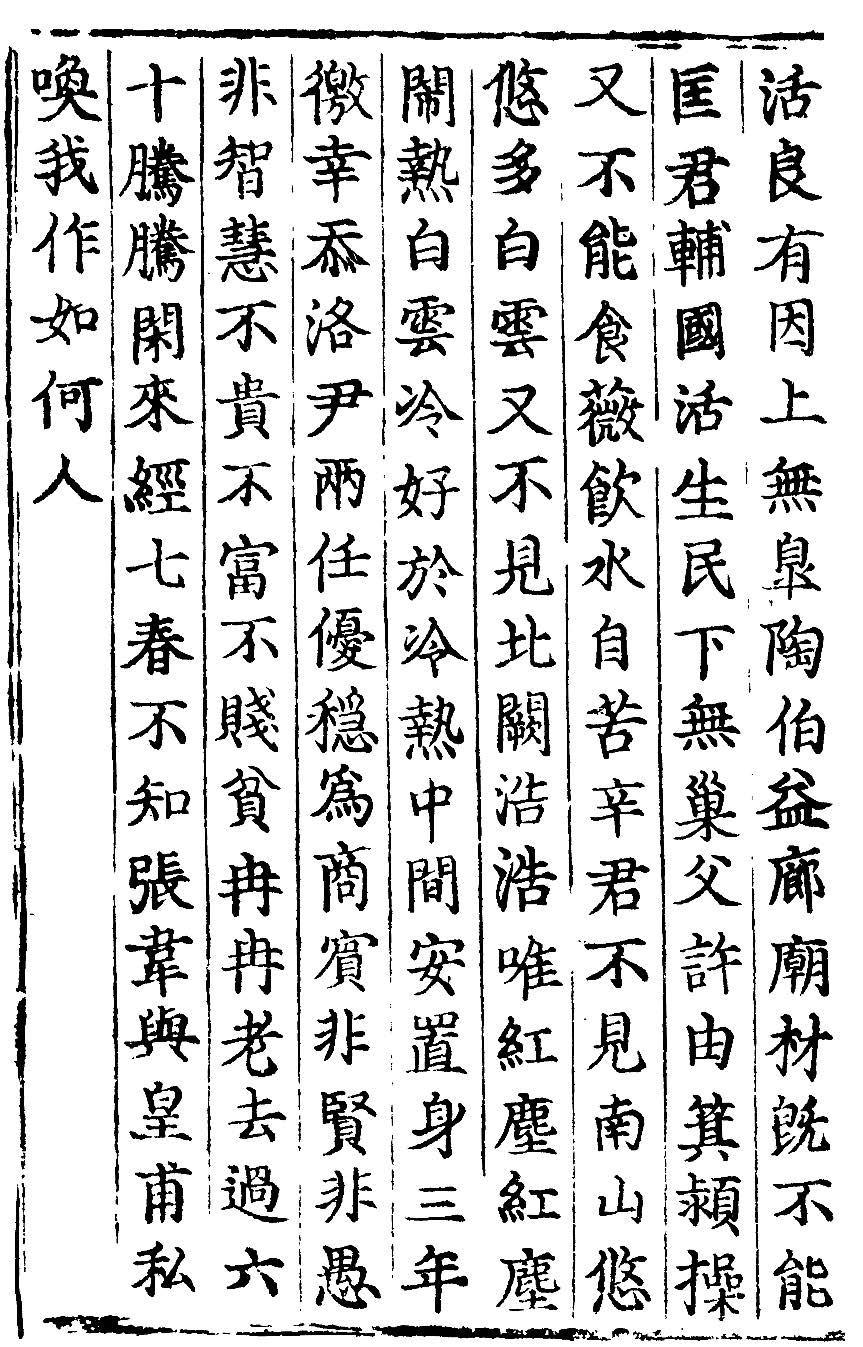 活良有因上無皐陶伯益廊廟材旣不能
匡君輔國活生民下無巢父許由箕潁操
又不能食薇飲水自苦辛君不見南山悠
悠多白雲又不見北闕浩浩唯紅塵紅塵
鬧熱白雲冷好於冷熱中間安置身三年
徼幸忝洛尹兩任優穏爲商賓非賢非愚
非智慧不貴不富不賤貧冉冉老去過六
十騰騰閑來經七春不知張韋與皇甫私
喚我作如何人